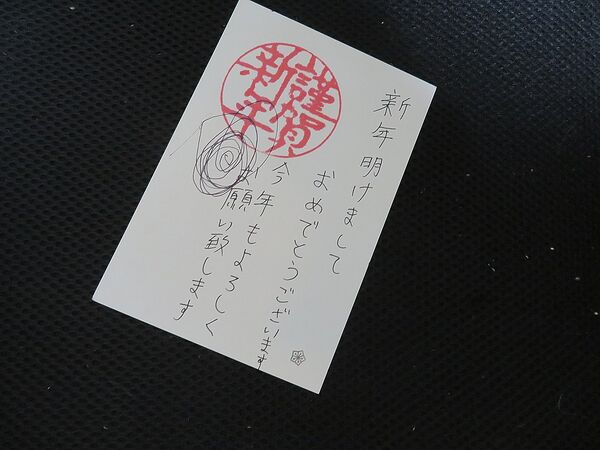 謹賀
新年
新年明けまして
おめでとうございます
今年もよろしく
お願い致します